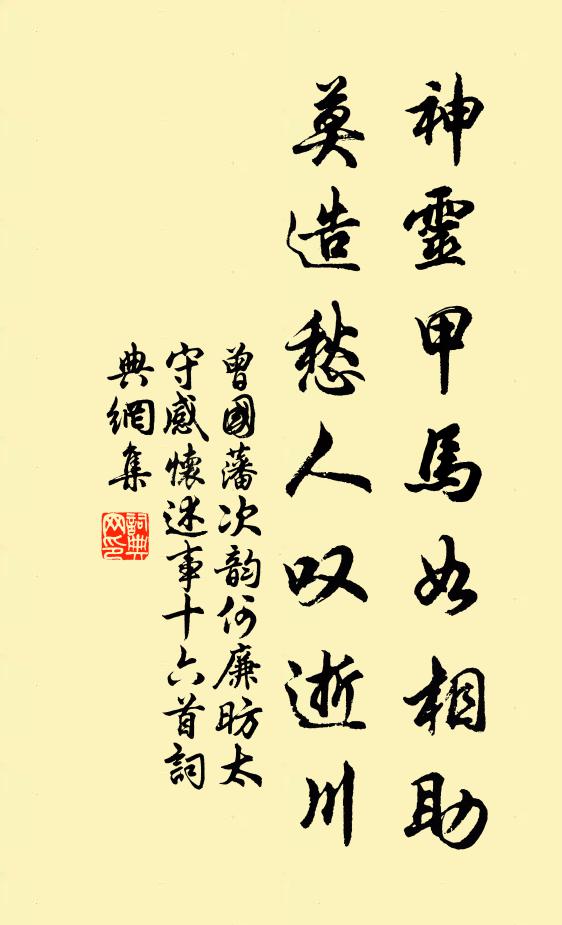 神靈甲馬如相助
莫造愁人叹逝川
曾國藩次韵何廉昉太
守感懷述事十六首詞
典網集
詞典
网印